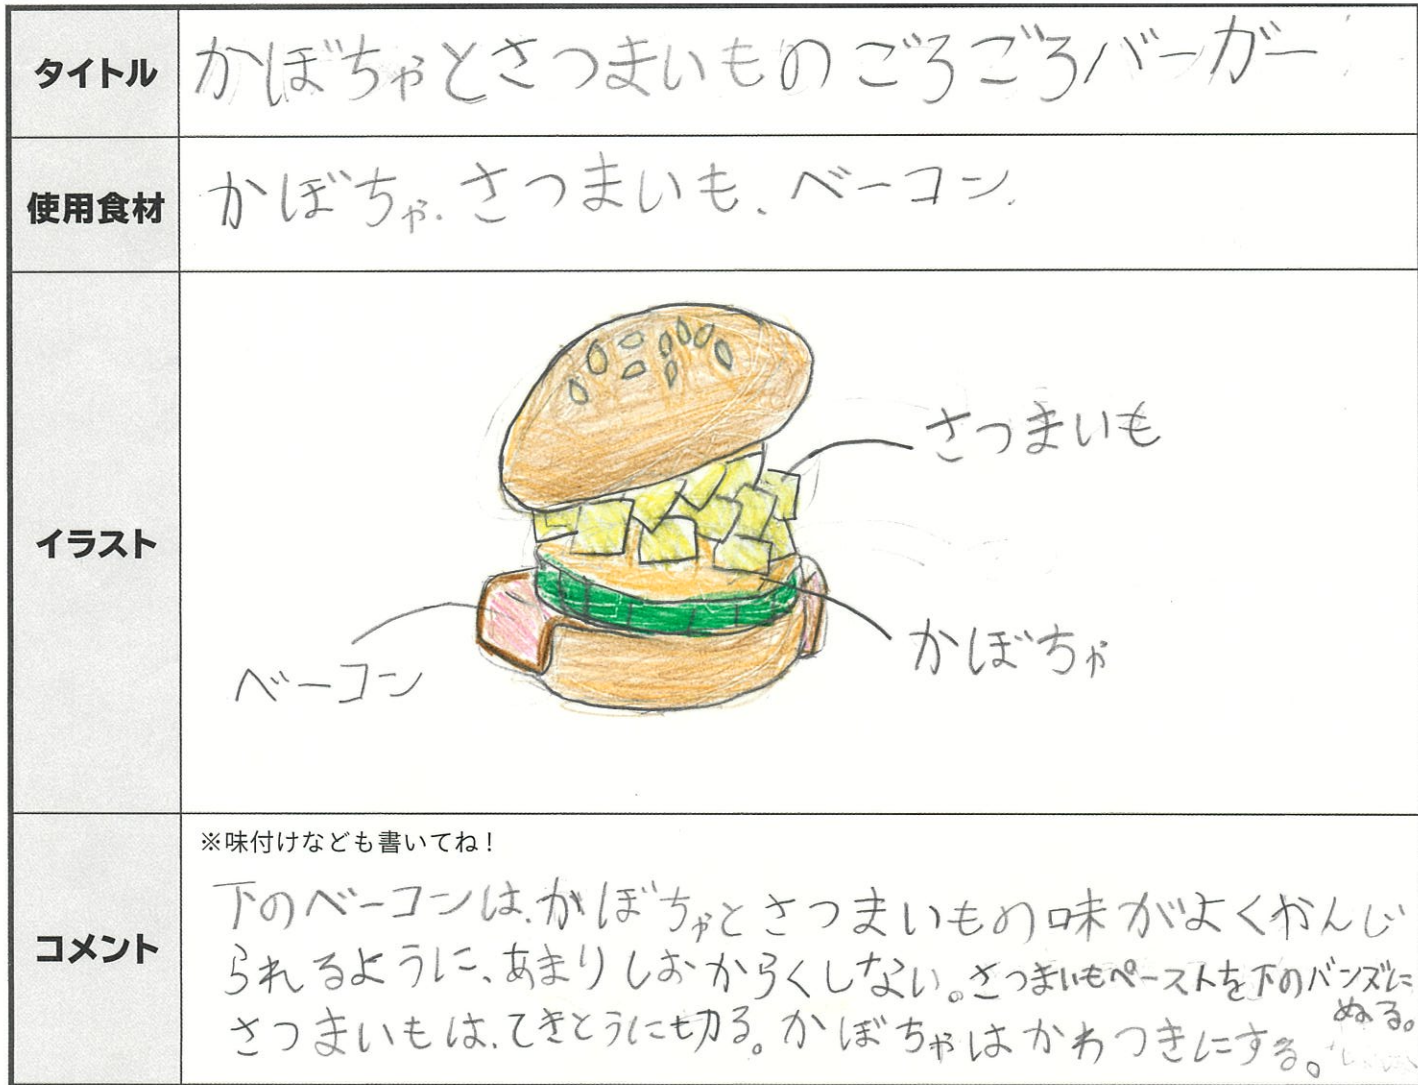 タイトル
かぼちゃとさつまいものごろごろバーガー
使用食材
かぼちゃ、さつまいも、ベーコン、
イラスト
さつまいも
かぼちゃ
ベーコン
コメント
※味付けなども書いてね!
下のベーコンは、かぼちゃとさつまいもの味がよくかんじ
られるように、あまりしおからくしない。さつまいもペーストを下のバンズに
ぬる。
さつまいもは、てきとうに切る。かぼちゃはかわつきにする。